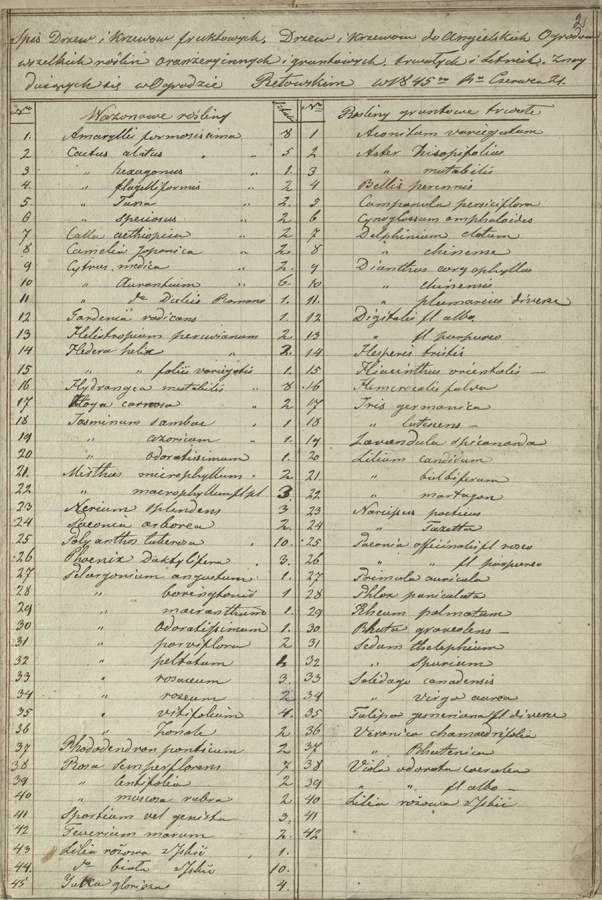 2
Spis Drzew i Krzewow fruktowych, Drzew i Krzewow do Angielskich Ogrodow
wszelkich roślin oranzeryinnych i gruntowych, trwałych i Letnich, znay
duiących się w Ogrodzie Retowskim w 1845 Czerwca 21.
No Wazonowe rośliny
1. Amaryllis formosissima 8
2 Cactus alatus " 5
3 " hexagonus " 1.
4. " flagelliformis " 2
5 " Tuna " 2.
6 " speciosus " 2
7 Calla aethiopica " 2.
8 Camelia Japonica " 2.
9 Cytrus medica " 2.
10 " Aurantium " 6.
11 " do Dulis Romano 1
12 Gardenia radicans 1.
13 Heliotropium peruvianum 2
14 Hedera helix " 2.
15 " " foliis variegatis 1.
16 Hydrangea mutabilis " 8
17 Hoya carnosa " 2
18 Jasminum Sambac . 1
19 " azoricum . 1.
20 " odoratissimum 1.
21. Mirthus microphyllum . 2
22 " macrophyllum fl pl 3.
23 Nerium splendens 3
24 Paeonia arborea 2.
25 Polyanthos tuberosa . 10.
26 Phoenix Daktylifera . 3.
27 Pelargonium angustum 1.
28 " 1
29 " macranthum 1.
30 " odoratissimum 1.
31 " parviflora 2
32 " peltatum
33 " rosaceum 3.
34 " roseum 2
35 " vitifolium 4.
36 " Zonale 2
37 Rhododendron ponticum 2
38 Rosa semperflorens 7
39 " Centifolia 2
40 " muscosa rubra 2.
41 Spartium vel genista 3.
42 Teucrium marum 2.
43 Lilia różowa 1.
44 do biała 10.
45 Jukka gloriosa 4.
No Rosliny gruntowe trwałe
1 Aconitum variegatum
2 Aster hisopifolius
3 " mutabilis
4 Bellis perennis
5 Campanula persiciflora
6 Cynoglossum omphaloides
7 Delphinium elatum
8 " chinense
9 Dianthus coryophyllus
10 " chinensis
11. " plumarius diverse
12 Digitalis fl albo
13 " fl purpureo
14 Hesperis tristis
15 Hiacinthus orientalis
16 Hemerocalis fulva
17 Iris germanica
18 " lutescens
19 Lavandula spicanarda
20 Lilium candidum
21 " bulbiferum
22 " martagon
23 Narcissus poeticus
24 " Tazetta
25 Paeonia officinalis fl roseo
26 " " fl purpureo
27 Primula auricula
28 Phlox paniculata
29 Rheum palmatum
30 Rhuta graveolens
31 Sedum thelephium
32 " Spurium
33 Soledago canadensis
34 " Virga aurea
35 Tulipa gesneriana fl diverse
36 Veronica chamaedrifolia
37 " Rhutenica
38 Viola odorata coerulea
39 " " fl albo
40 Lilia różowa
41
42